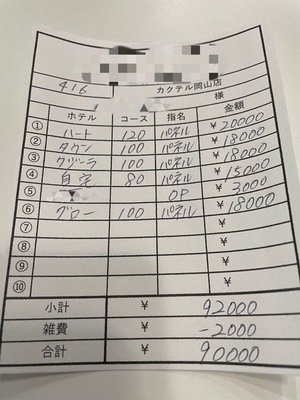 カクテル岡山店
416 様
ホテル コース 指名 金額
① ハート 120 パネル ¥20000
② タウン 100 パネル ¥18000
③ クヅーラ 100 パネル ¥18000
④ 自宅 80 パネル ¥15000
⑤ OP ¥3000
⑥ グロー 100 パネル ¥18000
⑦ ¥
⑧ ¥
⑨ ¥
⑩ ¥
小計 ¥ 92000
雑費 ¥ -2000
合計 ¥ 90000